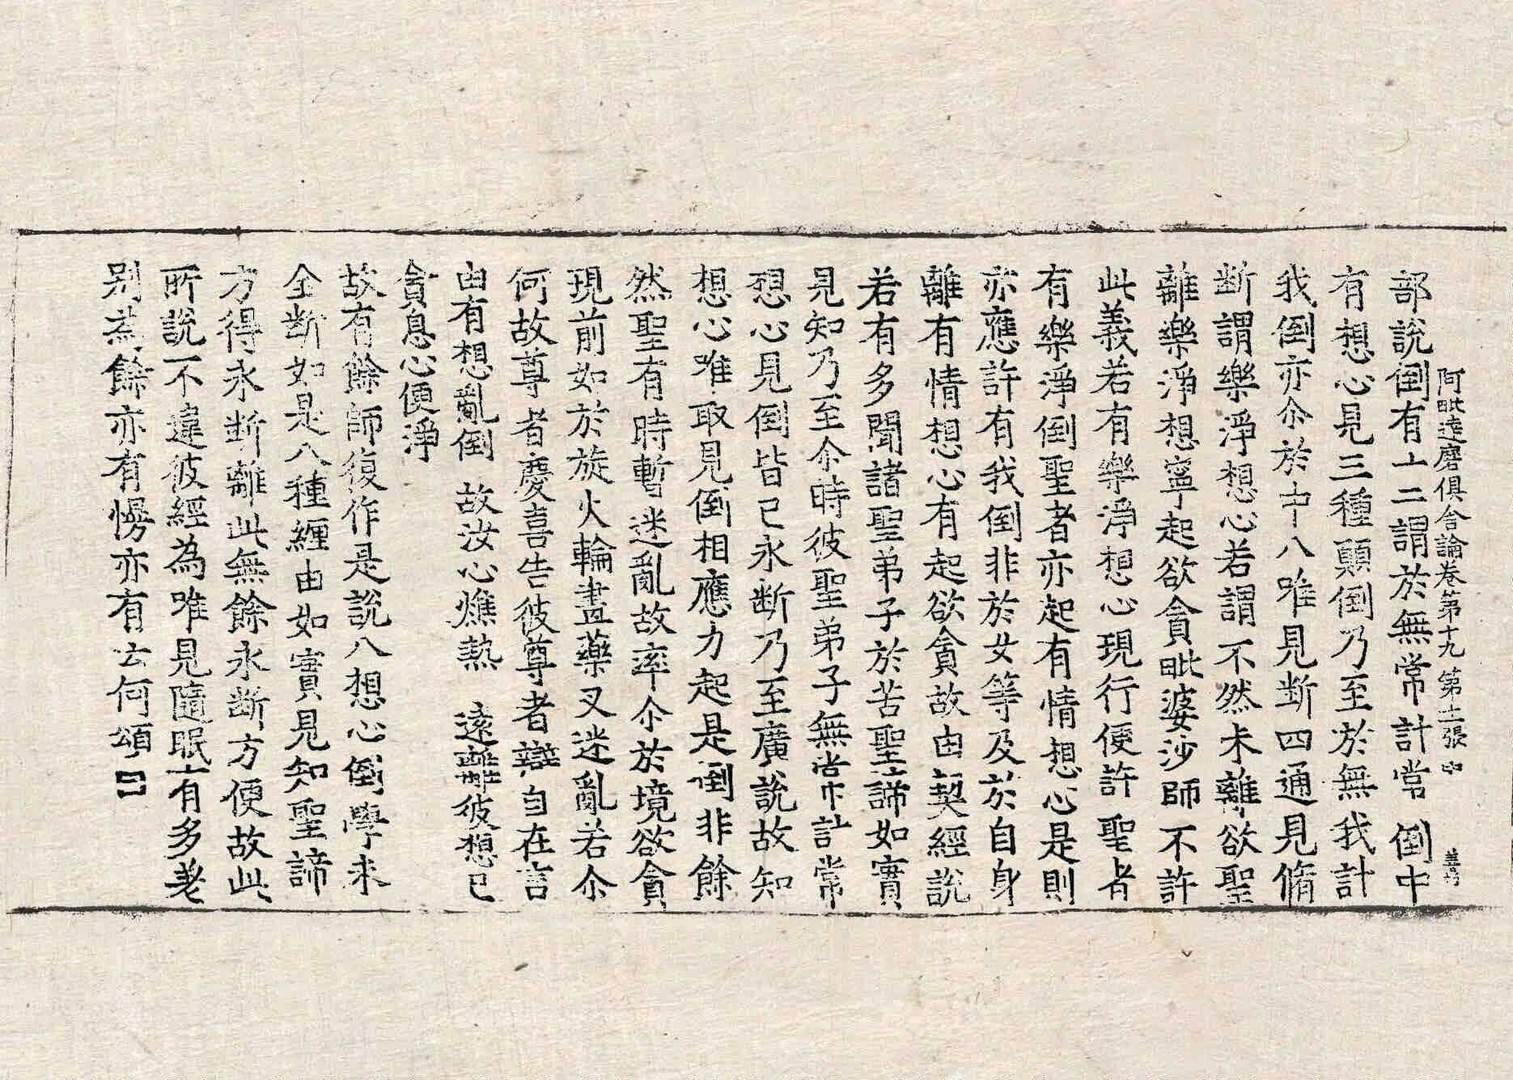 阿毗達磨俱舍論卷第十九 第十二張 中
部說倒有十二謂於無常計常倒中
有想心見三種顛倒乃至於無我計
我倒亦尒於中八唯見断四通見脩
断謂樂淨想心若謂不然未離欲聖
離樂淨想寧起欲貪毗婆沙師不許
此義若有樂淨想心現行便許聖者
有樂淨倒聖者亦起有情想心是則
亦應許有我倒非於女等及於自身
離有情想心有起欲貪故由契經說
若有多聞諸聖弟子於苦聖諦如實
見知乃至尒時彼聖弟子無常計常
想心見倒皆已永断乃至廣說故知
想心唯取見倒相應力起是倒非餘
然聖有時暫迷亂故率尒於境欲貪
現前如於旋火輪畫藥叉迷亂若尒
何故尊者慶喜告彼尊者辯自在言
由有想亂倒 故汝心燋熱 遠離彼想已
貪息心便淨
故有餘師復作是說八想心倒學未
全断如是八種纏由如實見知聖諦
方得永断離此無餘永断方便故此
所說不違彼經為唯見隨眠有多差
别為餘亦有慢亦有云何頌曰